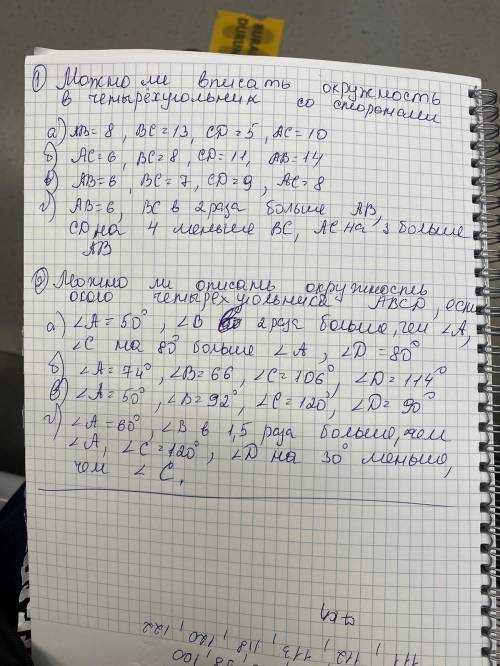 ① Можно ли вписать окружность
в четырёхугольник со сторонами
а) АВ = 8 , ВС = 13, СD = 5 , АС = 10
б) АС = 6 , ВС = 8 , СD = 11, АВ = 14
в) АВ = 6 , ВС = 7 , СD = 9 , АС = 8
г) АВ = 6, ВС в 2 раза больше АВ,
СD на 4 меньше ВС, АС на 3 больше
АВ
② Можно ли описать окружность
около четырёхугольника ABCD, если
а) ∠A = 50°, ∠B 2 раза больше, чем ∠A,
∠C на 80° больше ∠A , ∠D = 80°
б) ∠A = 74°, ∠B = 66 , ∠C = 106°, ∠D = 114°
в) ∠A = 50°, ∠B = 92°, ∠C = 120°, ∠D = 90°
г) ∠A = 60°, ∠B в 1,5 раза больше, чем
∠A, ∠C = 120°, ∠D на 30° меньше,
чем ∠C.
111, 112, 113, 118, 120, 122
100